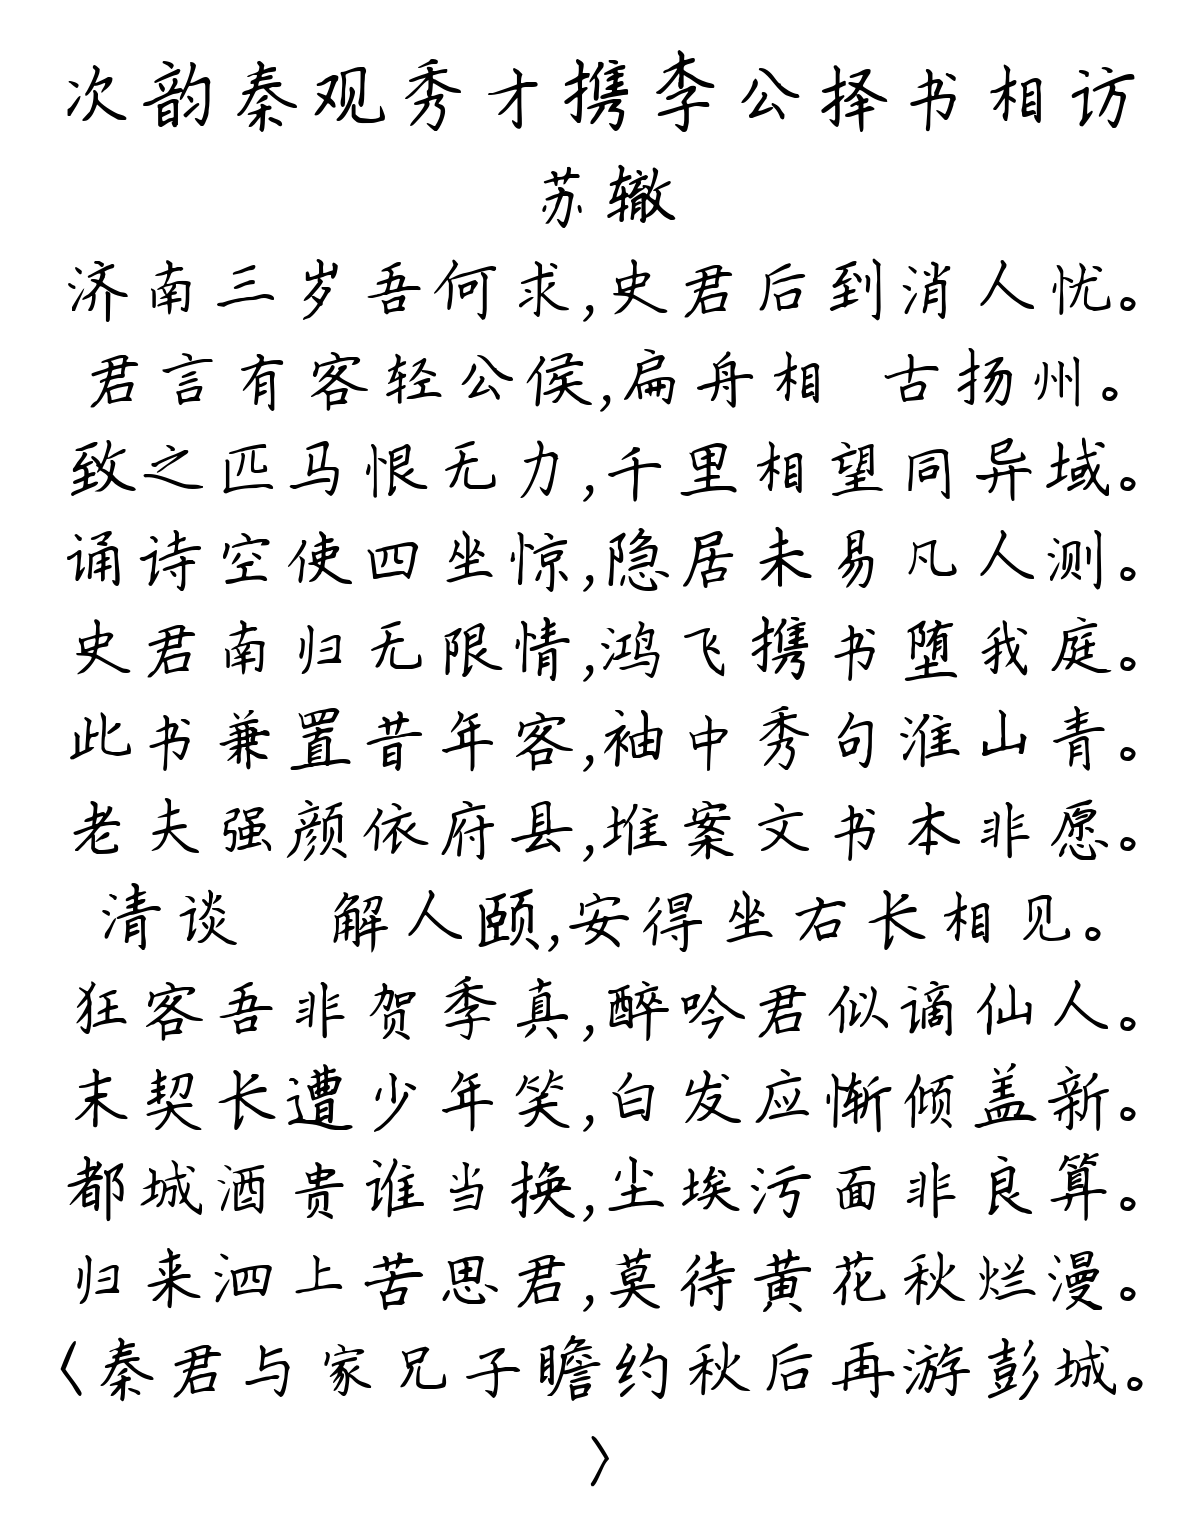 次韵秦观秀才携李公择书相访
苏辙
济南三岁吾何求,史君后到消人忧。
君言有客轻公侯,扁舟相 古扬州。
致之匹马恨无力,千里相望同异域。
诵诗空使四坐惊,隐居未易凡人测。
史君南归无限情,鸿飞携书堕我庭。
此书兼置昔年客,袖中秀句淮山青。
老夫强颜依府县,堆案文书本非愿。
清谈 解人颐,安得坐右长相见。
狂客吾非贺季真,醉吟君似谪仙人。
末契长遭少年笑,白发应惭倾盖新。
都城酒贵谁当换,尘埃污面非良算。
归来泗上苦思君,莫待黄花秋烂漫。
〈秦君与家兄子瞻约秋后再游彭城。
〉